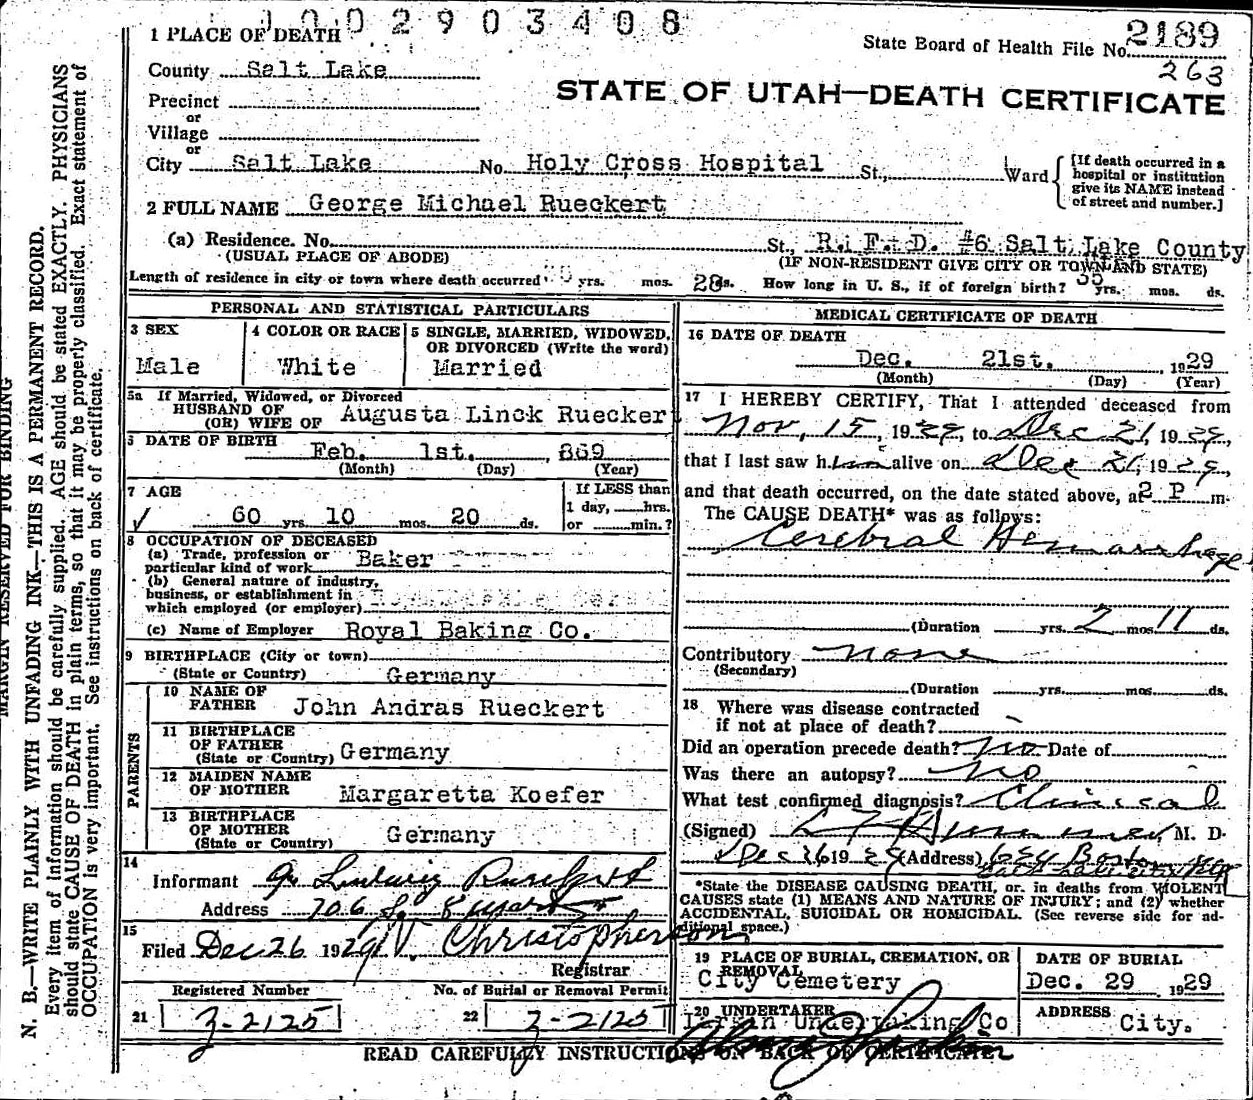 1002903408
1 PLACE OF DEATH
State Board of Health File No. 2189
263
County Salt Lake
STATE OF UTAH—DEATH CERTIFICATE
Precinct
or
Village
or
City Salt Lake No. Holy Cross Hospital St., Ward
[If death occurred in a
hospital or institution
give its NAME instead
of street and number.]
2 FULL NAME George Michael Rueckert
(a) Residence. No. St., R. F. D. #6 Salt Lake County
(USUAL PLACE OF ABODE)
(IF NON-RESIDENT GIVE CITY OR TOWN AND STATE)
Length of residence in city or town where death occurred yrs. mos. 28 ds. How long in U. S., if of foreign birth? yrs. mos. ds.
PERSONAL AND STATISTICAL PARTICULARS
3 SEX
Male
4 COLOR OR RACE
White
5 SINGLE, MARRIED, WIDOWED,
OR DIVORCED (Write the word)
Married
5a If Married, Widowed, or Divorced
HUSBAND OF
(OR) WIFE OF Augusta Linck Ruecker
6 DATE OF BIRTH
Feb. 1st. , 869
(Month) (Day) (Year)
7 AGE
60 yrs. 10 mos. 20 ds.
If LESS than
1 day, hrs.
or min.?
8 OCCUPATION OF DECEASED
(a) Trade, profession or
particular kind of work Baker
(b) General nature of industry,
business, or establishment in
which employed (or employer)
(c) Name of Employer Royal Baking Co.
9 BIRTHPLACE (City or town)
(State or Country) Germany
PARENTS
10 NAME OF
FATHER John Andras Rueckert
11 BIRTHPLACE
OF FATHER
(State or Country) Germany
12 MAIDEN NAME
OF MOTHER Margaretta Koefer
13 BIRTHPLACE
OF MOTHER
(State or Country) Germany
14
Informant G. Ludwig Rueckert
Address 706 So.
15
Filed Dec 26 1929 Christopherson
Registrar
Registered Number No. of Burial or Removal Permit
21 3-2125 22 3-2125
MEDICAL CERTIFICATE OF DEATH
16 DATE OF DEATH
Dec. 21st. , 1929
(Month) (Day) (Year)
17 I HEREBY CERTIFY, That I attended deceased from
Nov, 15, 1929, to Dec 21, 1929,
that I last saw him alive on Dec 21, 1929,
and that death occurred, on the date stated above, at 2 P m.
The CAUSE DEATH* was as follows:
Cerebral Hemorrhage
(Duration yrs. 2 mos 11 ds.
Contributory none
(Secondary)
(Duration yrs. mos. ds.
18 Where was disease contracted
if not at place of death?
Did an operation precede death? No Date of
Was there an autopsy? No
What test confirmed diagnosis? Clinical
(Signed) M. D.
Dec 26 1929 (Address) Boston
*State the DISEASE CAUSING DEATH, or, in deaths from VIOLENT
CAUSES state (1) MEANS AND NATURE OF INJURY; and (2) whether
ACCIDENTAL, SUICIDAL OR HOMICIDAL. (See reverse side for ad-
ditional space.)
19 PLACE OF BURIAL, CREMATION, OR
REMOVAL
City Cemetery
DATE OF BURIAL
Dec. 29 , 1929
20 UNDERTAKER
Undertaking Co
ADDRESS
City.
READ CAREFULLY INSTRUCTIONS ON BACK OF CERTIFICATE
MARGIN RESERVED FOR BINDING
N. B.—WRITE PLAINLY WITH UNFADING INK—THIS IS A PERMANENT RECORD.
Every item of information should be carefully supplied. AGE should be stated EXACTLY. PHYSICIANS
should state CAUSE OF DEATH in plain terms, so that it may be properly classified. Exact statement of
OCCUPATION is very important. See instructions on back of certificate.